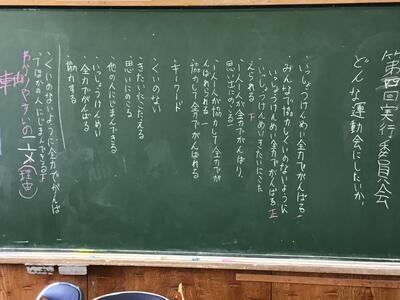 第四回実行委員会
どんな運動会にしたいか。
・いっしょうけんめい全力でがんばる!
・みんなで協力しくいのないように
いっしょうけんめい全力でがんばる 正
・いっしょうけんめいきたいにこた
えられる 下
・一人一人が全力でがんばり、
思い出にのこる
・一人一人が協力して全力でが
んばれる
・協力して全力でがんばれる
キーワード
・くいのない
・きたいにこたえる
・思いにのこる
・他の人にじまんできる
・いっしょうけんめい
全力でがんばる
・協力する
・くいのないように全力でがんば
ってほかの人にじまんできる 下
わかりやすいの
文(理由)